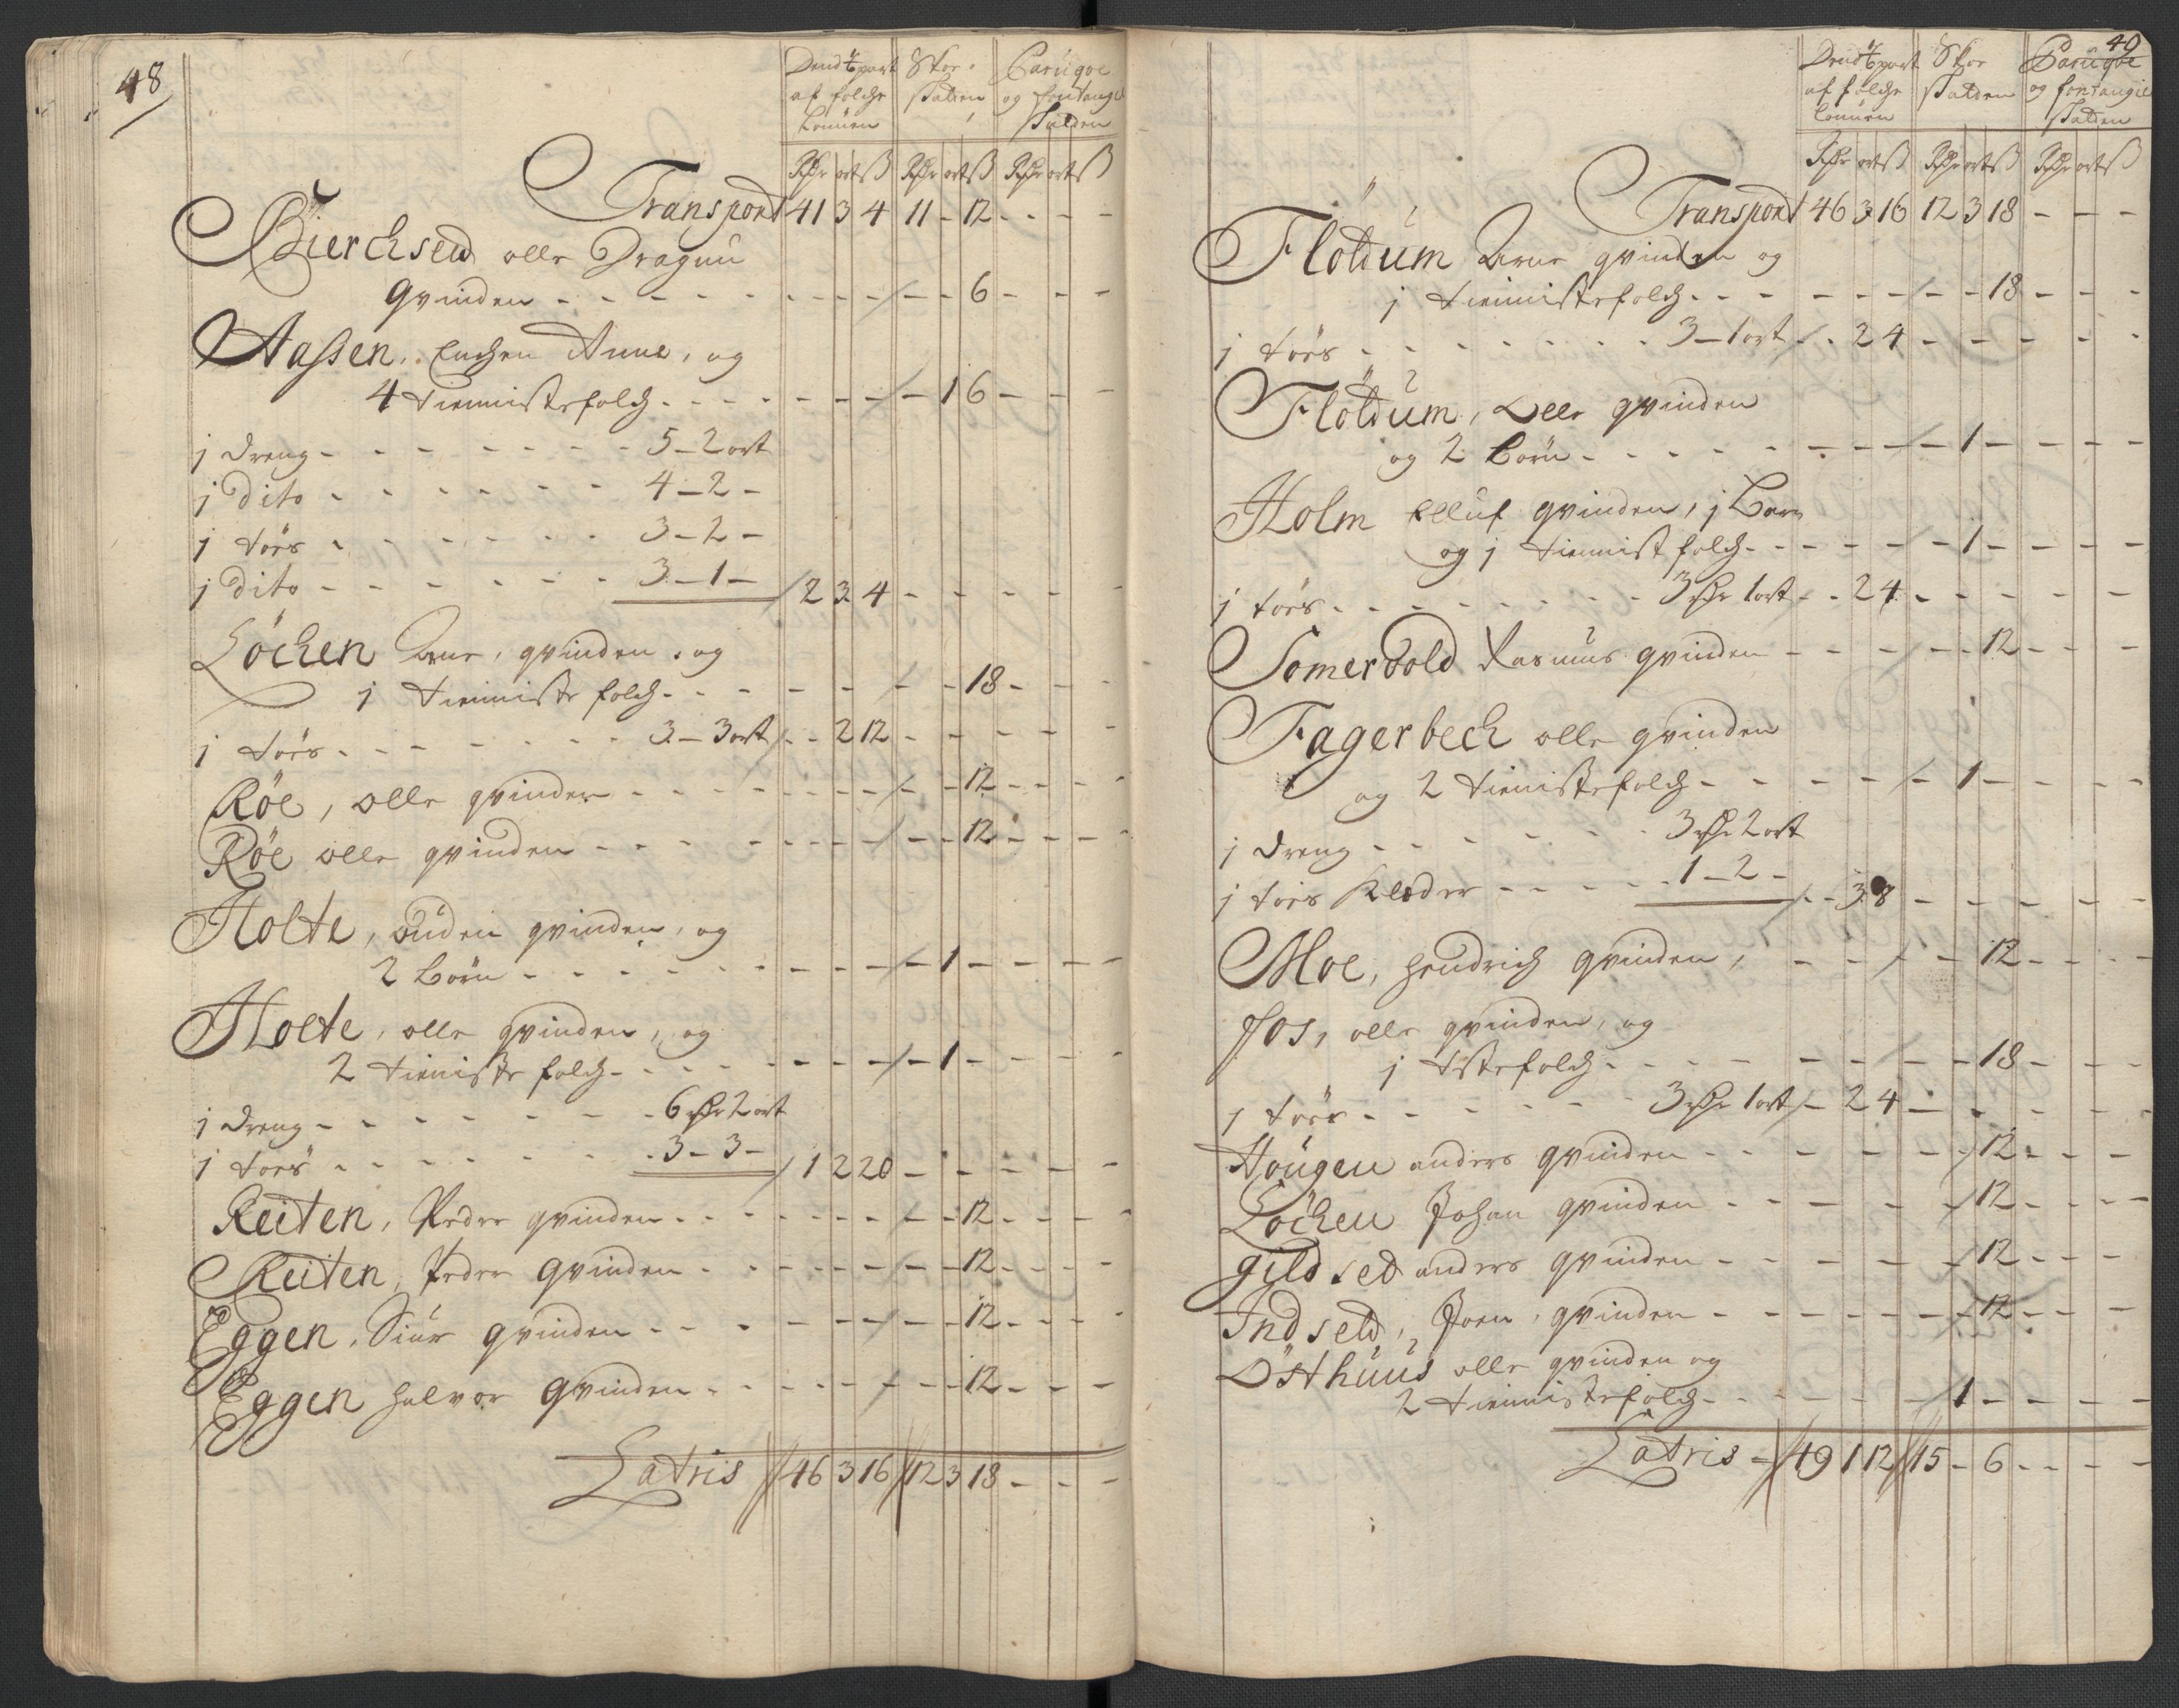 48
Dend 1/6 part af folche Lönnen
Skoe skatten
Paruqve og fontangie skatten
Rdr ort ß Rdr ort ß Rdr ort ß
Transport 41 3 4 11 - 12 - - -
Bierchsed olle Dragun
qvinden - - - - - 6 - - -
Aassen, Enchen Anne, og
4 tiennistefolch - - - - 1 6 - - -
j dreng - - - 5 - 2 ort
j dito - - - 4 - 2 -
j töes - - - 3 - 2 -
j dito - - - 3 - 1 - 2 3 4 - - - - -
Löchen Arne, qvinden, og
j tienniste folch - - - - 18 - - -
j töes - - - 3 - 3 ort - 2 12 - - - - -
Röe, olle qvinden - - - - 12 - - -
Röe olle qvinden - - - - 12 - - -
Holte, qvinden, og
2 börn - - - - 1 - - - -
Holte, olle qvinden, og
2 tieniste folch - - - - 1 - - - -
j dreng - - - 6 Rdr 2 ort
j töes - - - 3 - 3 - 1 2 20 - - - - -
Reiten, Peder qvinden - - - - 12 - - -
Reiten, Peder qvinden - - - - 12 - - -
Eggen, Siur qvinden - - - - 12 - - -
Eggen halvor qvinden - - - - 12 - - -
Latris 46 3 16 12 3 18 - - -
49
Dend 1/6 part af folche Lönnen
Skoe skatten
Paruqve og fontangie skatten
Rdr ort ß Rdr ort ß Rdr ort ß
Transport 46 3 16 12 3 18 - - -
Flöttum Arne qvinden og
j tiennistefolch - - - - 18 - - -
j töes - - - 3 - 1 ort - 2 4 - - - - -
Flöttum, Olle qvinden
og 2 börn - - - - 1 - - - -
Holm Elluf qvinden, j barn
og j tiennist folch - - - - 1 - - - -
j töes - - - 3 Rdr 1 ort - 2 4 - - - - -
Somervold Rasmus qvinden - - - - 12 - - -
Fagerbech olle qvinden
og 2 tienistefolch - - - - 1 - - - -
j dreng - - - 3 Rdr 2 ort
j töes Klæder - - - 1 - 2 - - 3 8 - - - - -
Moe, hendrich qvinden, - - - - 12 - - -
Fos, olle qvinden, og
j tstefolch - - - - 18 - - -
j töes - - - 3 Rdr 1 ort - 2 4 - - - - -
Hougen anders qvinden - - - - 12 - - -
Löchen Johan qvinden - - - - 12 - - -
gildset anders qvinden - - - - 12 - - -
Indseth, Joen, qvinden - - - - 12 - - -
Östhuus olle qvinden og
2 tiennistefolch - - - - 1 - - - -
Latris - 49 1 12 15 - 6 - - -